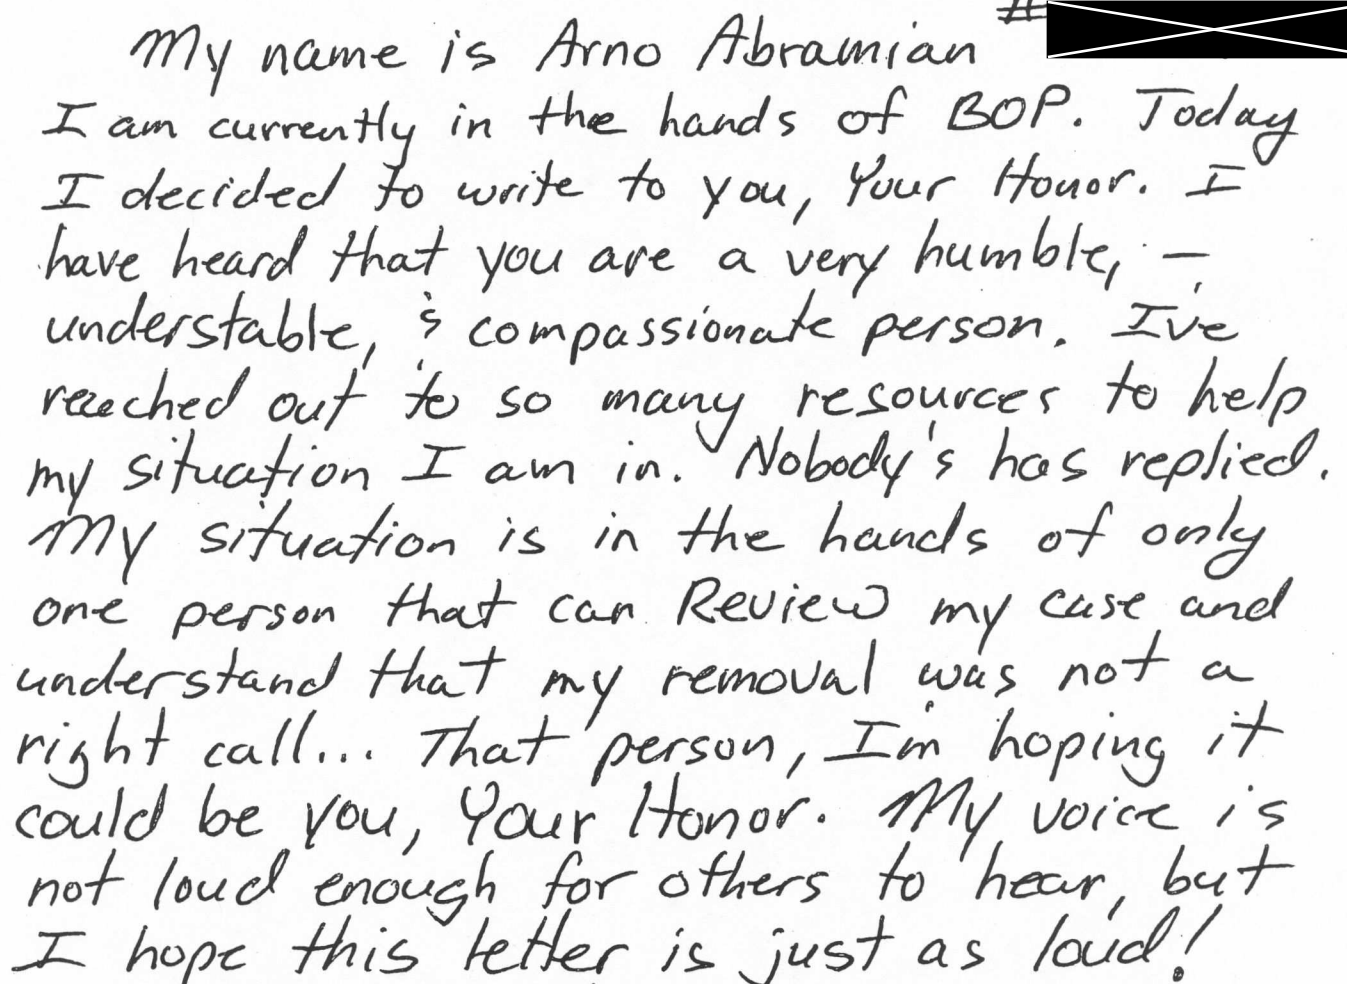 My name is Arno Abramian #
I am currently in the hands of BOP. Today
I decided to write to you, Your Honor. I
have heard that you are a very humble, –
understable, & compassionate person. I've
reached out to so many resources to help
my situation I am in. Nobody's has replied.
My situation is in the hands of only
one person that can Review my case and
understand that my removal was not a
right call... That person, I'm hoping it
could be you, Your Honor. My voice is
not loud enough for others to hear, but
I hope this letter is just as loud!